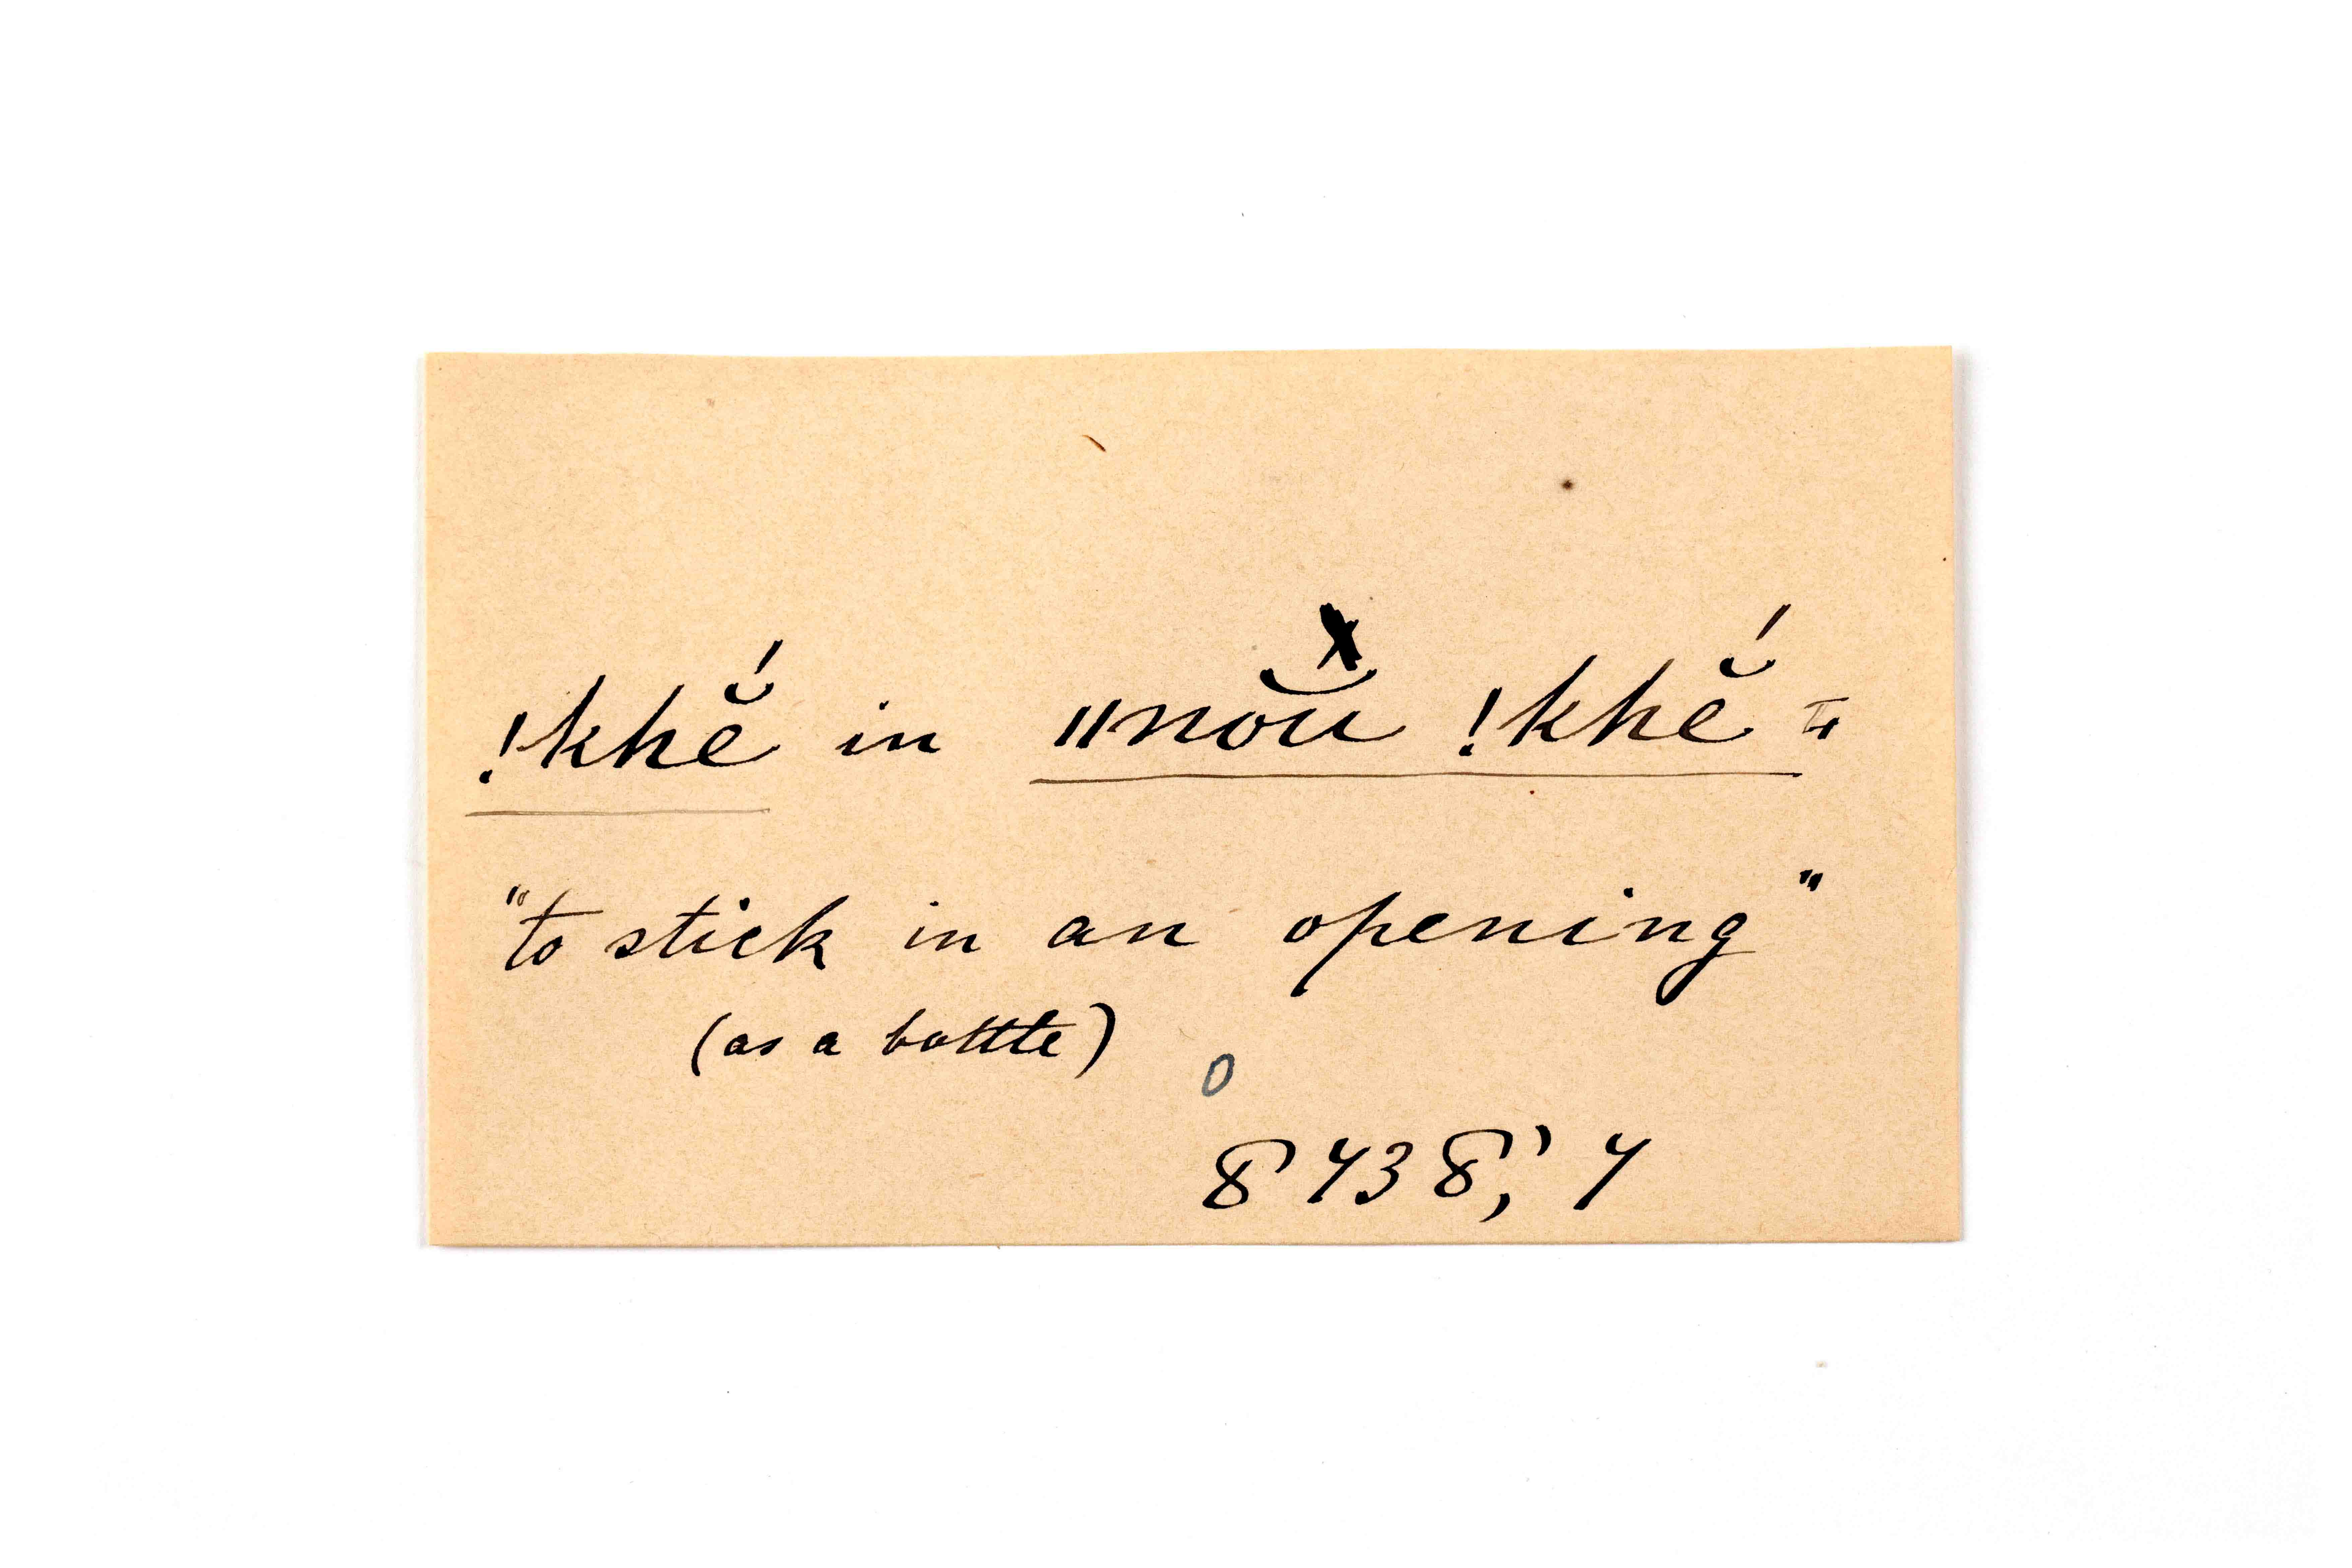 !khĕ́ in ǁnŏŭ !khĕ́ =
"to stick in an opening"
(as a bottle)
0
8438;' 4